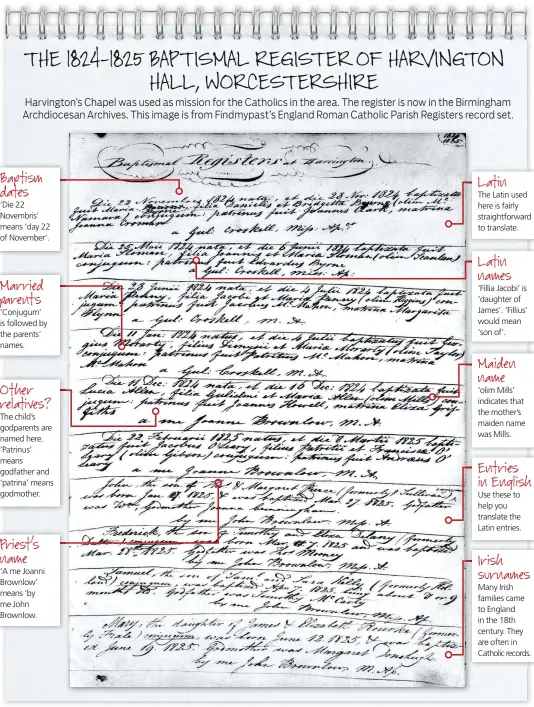 THE 1824-1825 BAPTISMAL REGISTER OF HARVINGTON
HALL, WORCESTERSHIRE
Harvington's Chapel was used as mission for the Catholics in the area. The register is now in the Birmingham
Archdiocesan Archives. This image is from Findmypast's England Roman Catholic Parish Registers record set.
Baptism
dates
'Die 22
Novembris'
means 'day 22
of November'.
Married
parents
'Conjugum'
is followed by
the parents'
names.
Other
relatives?
The child's
godparents are
named here.
'Patrinus'
means
godfather and
'patrina' means
godmother.
Priest's
name
'A me Joanni
Brownlow'
means 'by
me John
Brownlow.
Baptismal Registers at Harvington
Die 22 Novembris 1824 nata, et die 23 Nov. 1824 baptizata
fuit Maria filia Danielis et Bridgitta Byrne (olim Mc
Namara) conjugum: patrinus fuit Joannes Clark, matrina
Joanna
a Gul: Croskell, Miss. Apc.
Die 25 Maii 1824 nata, et die 6 Junii 1824 baptizata fuit
Maria filia Joannis et Maria (olim Scanlon)
conjugum: patrinus fuit Edwardus Byrne
a Gul: Croskell, Miss. Ap:
Die 23 Junii 1824 nata, et die 4 Julii 1824 baptizata fuit
Maria filia et Maria (olim Higins) con-
jugum: patrinus fuit Mc Mahon, matrina Margarita
Flynn
a Gul: Croskell, M. A.
Die 11 Jan. 1824 natus, et die 4 Julii baptizatus fuit Geor-
gius Morarty, filius et Maria Morarty (olim Taylor)
conjugum: patrinus fuit Mc Mahon, matrina
McMahon
a Gul. Croskell, M. A.
Die 11 Dec. 1824 nata, et die 16 Dec: 1824 baptizata fuit
Lucia Allen, filia Gulielmi et Maria Allen (olim Mills) con-
jugum: patrinus fuit Joannes Howell, matrina Eliza Grif-
fiths
a me Joanne Brownlow, M. A.
Die 22 Februarii 1825 natus, et die 8 Martii 1825 bapti-
zatus fuit Jacobus O'Leary, filius Patritii et Francisca O'
Leary (olim Gibson) conjugum: patrinus fuit Andreas O'
Leary
a me Joanne Brownlow, M. A.
John, the son of & Margaret Pierce (formerly Sullivan)
was born Jan. 1825 & was baptized Mar. 27 1825. Godfather
was Godmother Joanna Cunningham
by me John Brownlow, Miss. A.
Frederick the son of Timothy and Eliza Delany (formerly
conjugum was born Mar. 7. 1825 and was baptized
Mar. 28th 1825. Godfather was Mooney
by me John Brownlow, M. Ap.
Samuel, the son of Sam. and Sara Kelly (formerly Hol
land) conjugum, was baptized 1825, being about 8 or 9
months old. Godfather was Timothy McCarty
by me John Brownlow, Miss. Ap.
Mary, the daughter of James & Elizabeth Rourke (former-
ly Frale) conjugum, was born June 12 1825, & was baptiz-
ed June 19. 1825. Godmother was Margaret Donehugh.
by me John Brownlow, M. Ap.
Latin
The Latin used
here is fairly
straightforward
to translate.
Latin
names
'Fillia Jacobi' is
'daughter of
James'. 'Fillius'
would mean
'son of'.
Maiden
name
'olim Mills'
indicates that
the mother's
maiden name
was Mills.
Entries
in English
Use these to
help you
translate the
Latin entries.
Irish
surnames
Many Irish
families came
to England
in the 18th
century. They
are often in
Catholic records.